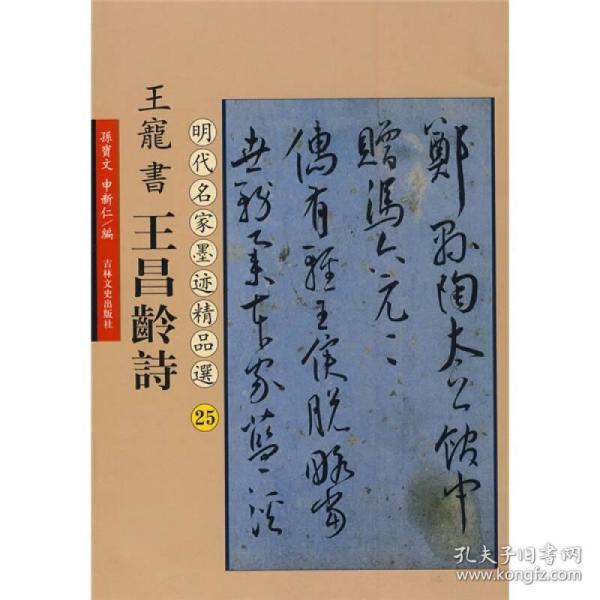 王寵書 王昌齡詩
明代名家墨迹精品選 25
孫寶文 申新仁/編
吉林文史出版社
鄭縣陶太公館中
贈馮六元二
儒有輕王侯脫略當
世務本家藍溪
孔夫子旧书网
www.kongfz.com